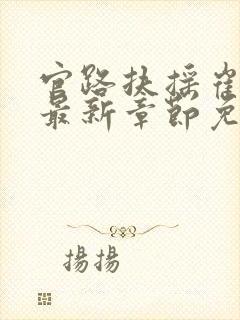 官路扶摇崔
最新章节免
揚揚